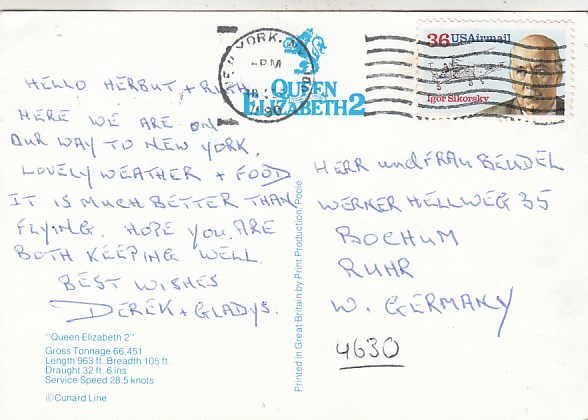 HELLO HERBUT + RUTH
HERE WE ARE ON
OUR WAY TO NEW YORK.
LOVELY WEATHER + FOOD
IT IS MUCH BETTER THAN
FLYING. HOPE YOU ARE
BOTH KEEPING WELL.
BEST WISHES
DEREK + GLADYS.
"Queen Elizabeth 2"
Gross Tonnage 66,451
Length 963 ft. Breadth 105 ft.
Draught 32 ft. 6 ins.
Service Speed 28.5 knots
©Cunard Line
Printed in Great Britain by Print Production, Poole
QUEEN
ELIZABETH 2
NEW YORK, N
PM
1990
36 USAirmail
Igor Sikorsky
HERR und FRAU BEUDEL
WERNER HELLWEG 35
BOCHUM
RUHR
W. GERMANY
4630